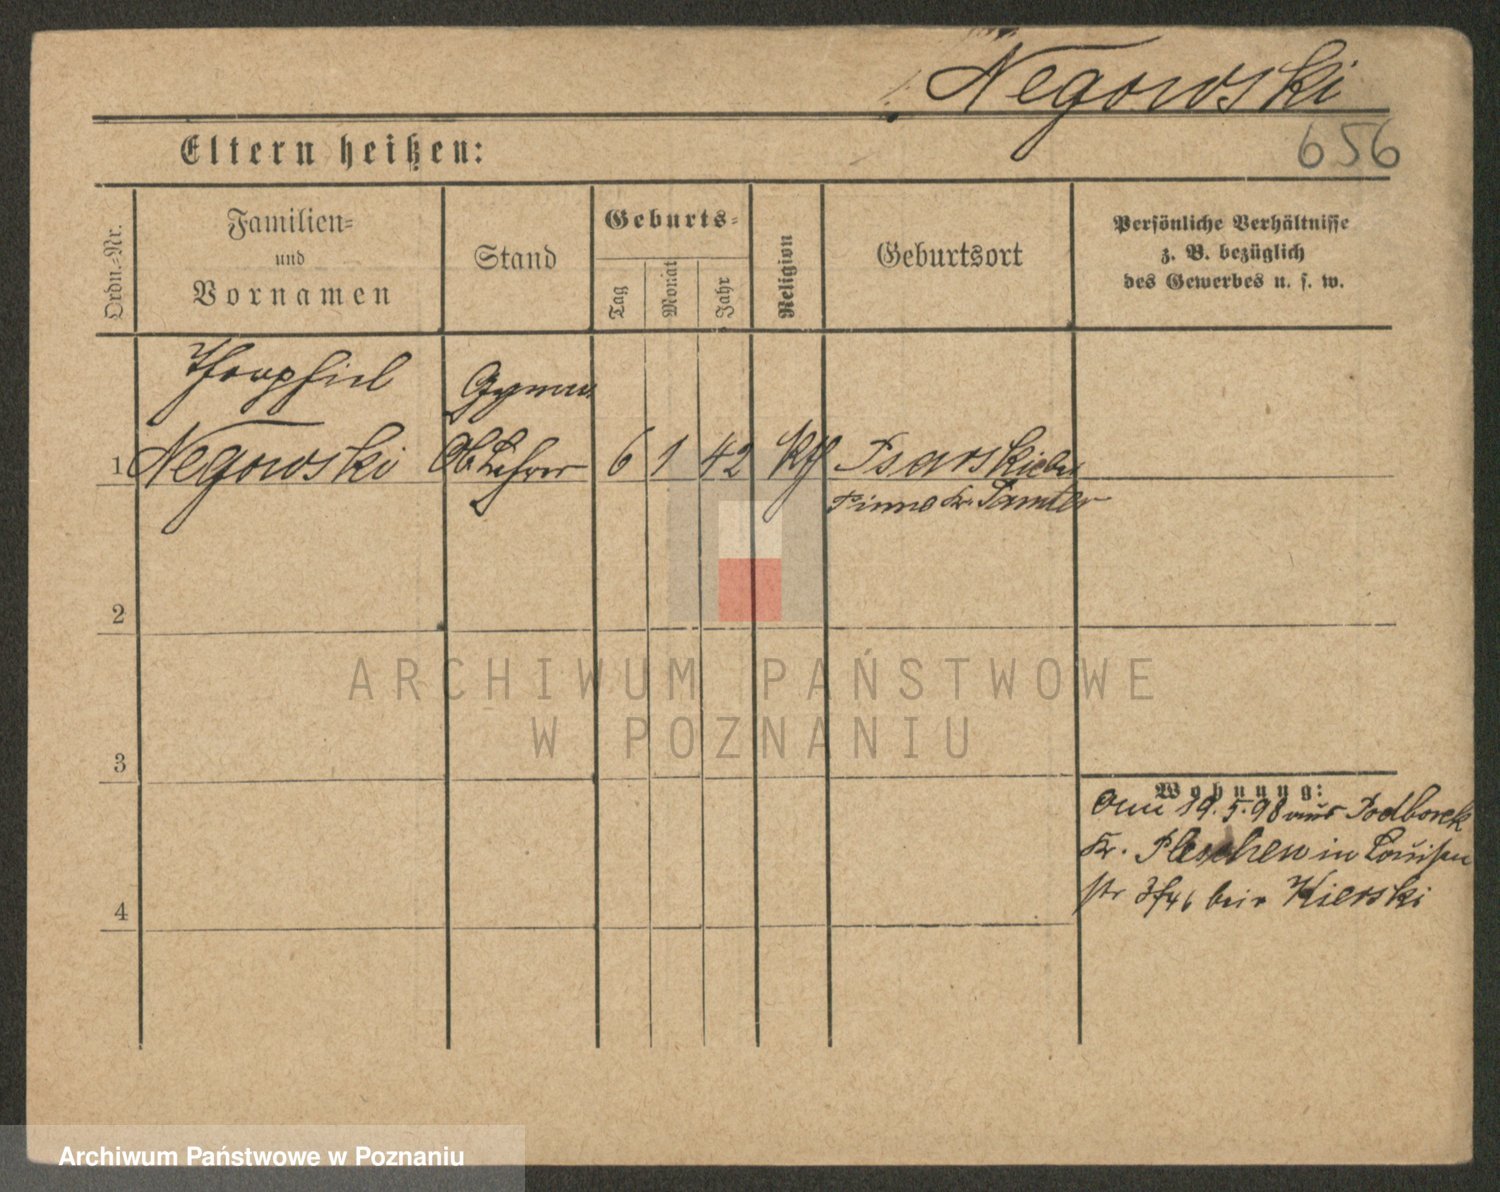 Negowski
656
Eltern heißen:
Ordn.-Nr.
Familien-
und
Vornamen
Stand
Geburts-
Tag
Monat
Jahr
Religion
Geburtsort
Persönliche Verhältnisse
z. B. bezüglich
des Gewerbes u. s. w.
Theophiel
Gymn.
1 Negowski ObLehrer 6 1 42 kth Psarskie bei
Pinne Kr. Samter
2
3
4
Wohnung:
Am 19.5.98 aus Podborek
Kr. Pleschen in Louisen
str bei Kierski
ARCHIWUM PAŃSTWOWE
W POZNANIU
Archiwum Państwowe w Poznaniu